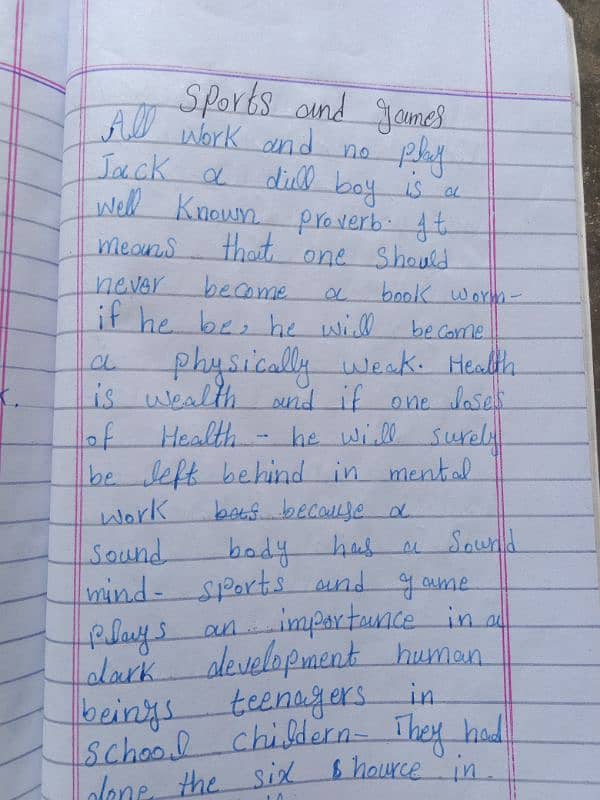 Sports and games
All work and no play
Jack a dull boy is a
well known proverb. It
means that one should
never become a book worm-
if he be, he will become
a physically weak. Health
is wealth and if one loses
of Health - he will surely
be left behind in mental
work bas because a
sound body has a sound
mind- sports and game
plays an importance in a
dark development human
beings teenagers in
school childern- They had
done the six hource in.